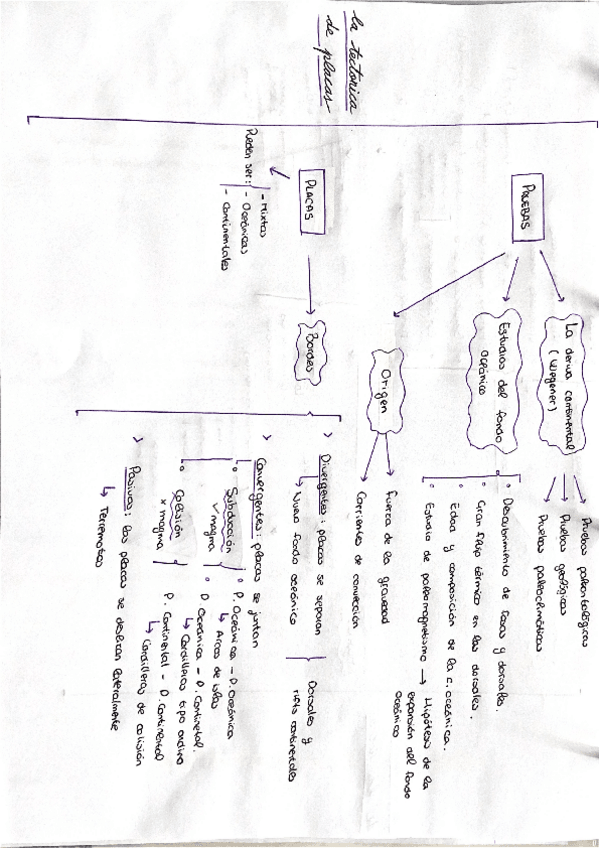 la tectónica
de placas
PRUEBAS
La deriva continental
(Wegener)
Pruebas paleontológicas
Pruebas geológicas
Pruebas paleoclimáticas
Estudios del fondo
oceánico
Descubrimiento de fosas y dorsales.
Gran flujo térmico en las dorsales.
Edad y composición de la c. oceánica.
Estudio de paleomagnetismo → Hipótesis de la
expansión del fondo
oceánico
Origen
Fuerza de la gravedad
Corrientes de convección
PLACAS
Pueden ser:
- Mixtas
- Oceánicas
- Continentales
Bordes
> Divergentes: placas se separan
↳ Nuevo fondo oceánico
Dorsales y
rifts continentales
> Convergentes: placas se juntan
Subducción
✓ magma
P. Oceánica - P. oceánica
↳ Arcos de islas
P. Oceánica - P. Continental.
↳ Cordilleras tipo andino
Colisión
x magma
P. Continental - P. Continental
↳ Cordilleras de colisión
> Pasivos: las placas se deslizan lateralmente
↳ Terremotos